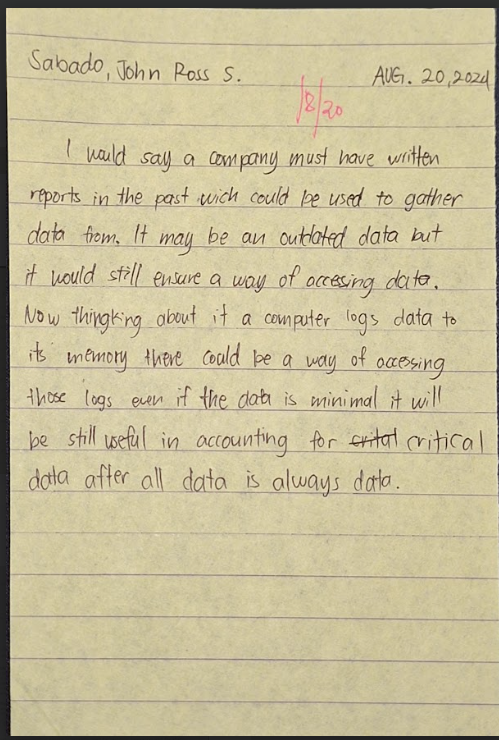 Sabado, John Ross S.
AUG. 20, 2024
18/20
I would say a company must have written
reports in the past wich could be used to gather
data from. It may be an outdated data but
it would still ensure a way of accesing data.
Now thingking about it a computer logs data to
its memory there could be a way of accessing
those logs even if the data is minimal it will
be still useful in accounting for crital critical
data after all data is always data.